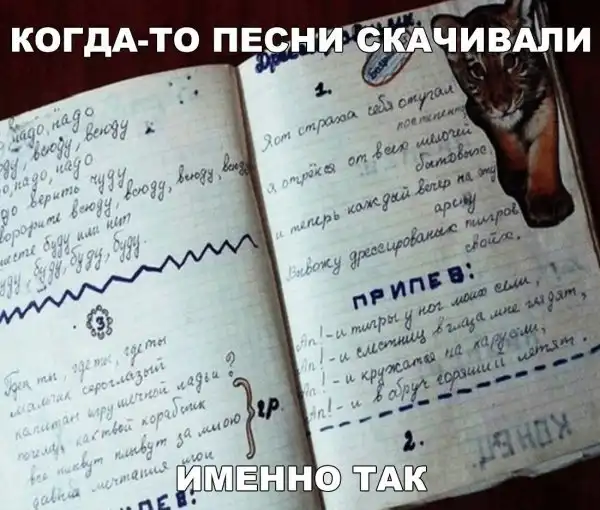 КОГДА-ТО ПЕСНИ СКАЧИВАЛИ
надо, надо
всюду, всюду
надо, надо
верить чуду
всюду, всюду, всюду, всюду
буду или нет
буду, буду, буду.
3
Где ты, где ты, где ты
мальчик сероглазый
капитан игрушечной ладьи?
почему, как твой кораблик
все плывут плывут за мною
давние мечтания мои
2р.
ПЕВ:
1.
Я от страха себя отучал
постепенно
Я отрёкся от всех мелочей
бытовых
и теперь каждый вечер на эту
арену
Вывожу дрессированных тигров
своих.
ПРИПЕВ:
Ап! - и тигры у ног моих сели,
Ап! - и с лестниц в глаза мне глядят,
Ап! - и кружатся на карусели,
Ап! - и в обруч горящий летят.
2.
ИМЕННО ТАК